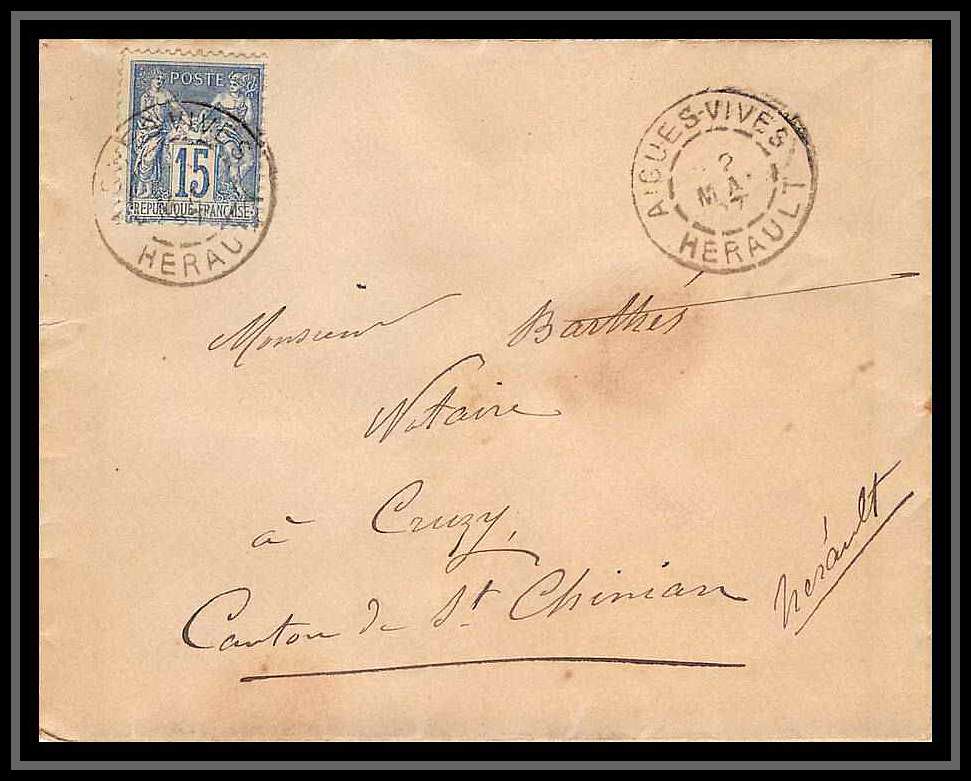 POSTE
15
REPUBLIQUE FRANÇAISE
HERAULT
AIGUES-VIVES
2
MA.
HERAULT
Monsieur Barthès
Notaire
à Cruzy,
Canton de St. Chinian
hérault